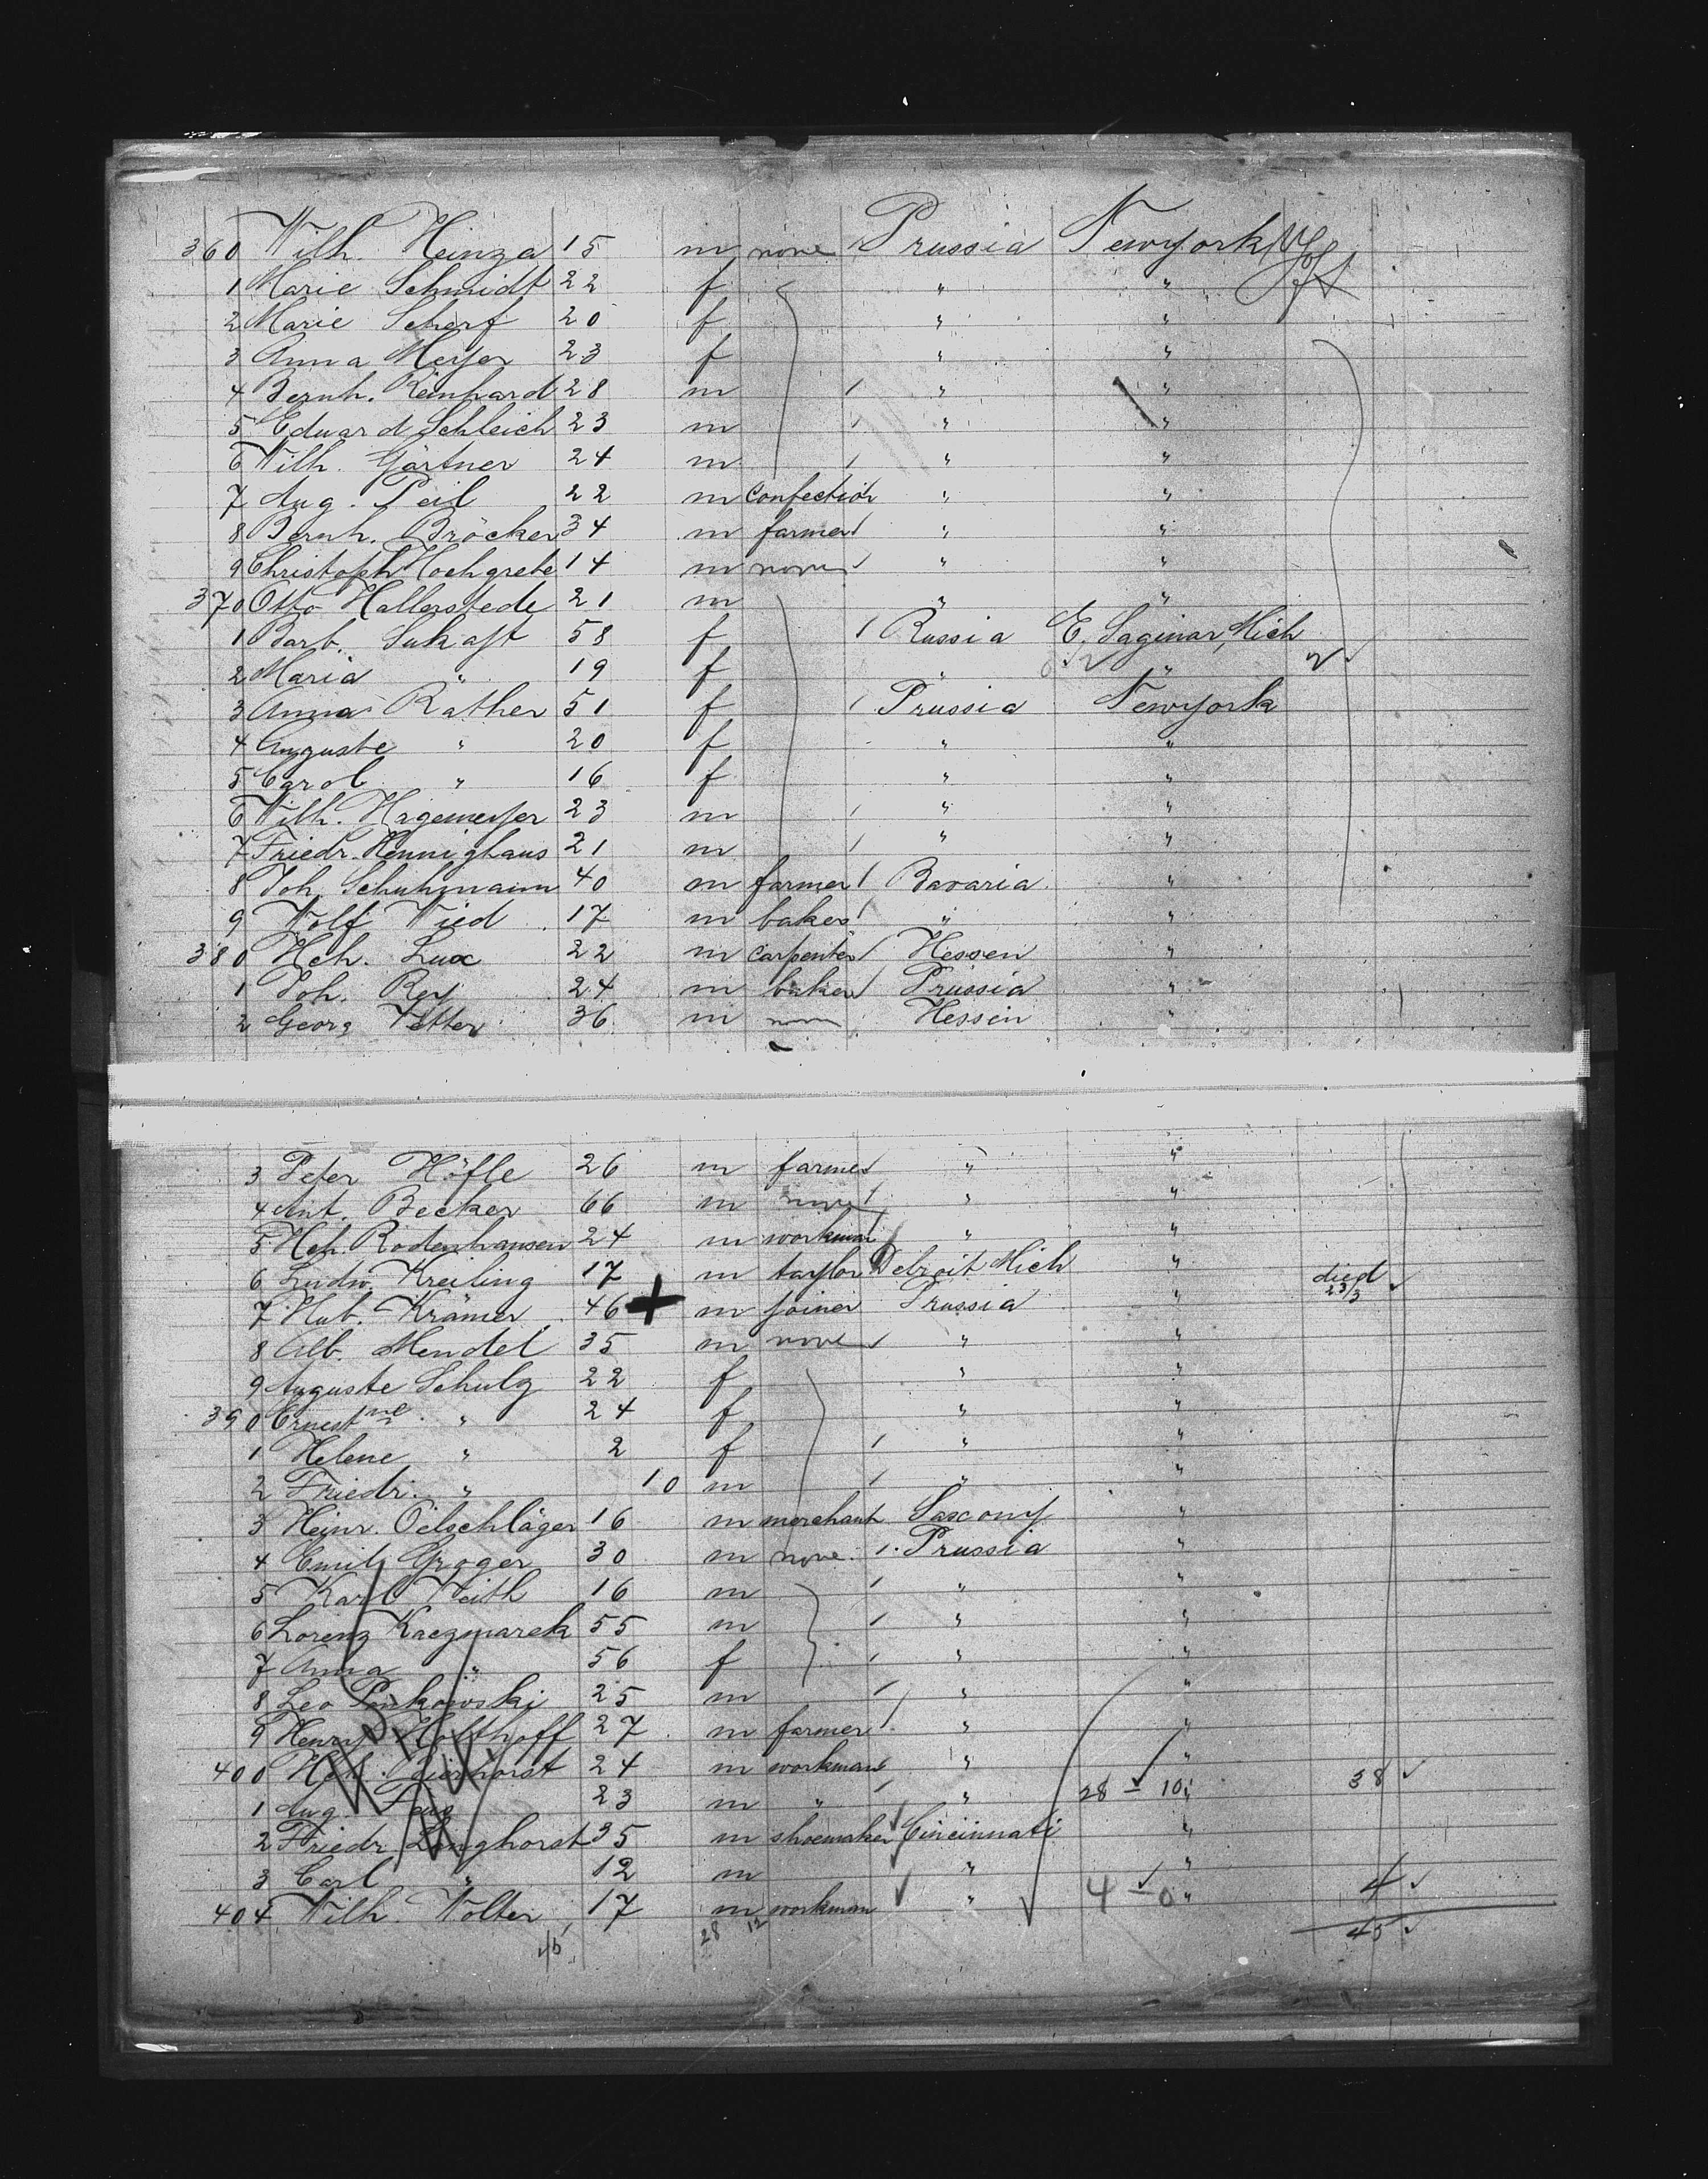 360 Wilh. Heinza 15 m none Prussia Newyork
1 Marie Schmidt 22 f " "
2 Marie Scherf 20 f " "
3 Anna Meyer 23 f " "
4 Bernh. Reinhard 28 m " "
5 Eduard Schleich 23 m " "
6 Wilh. Gärtner 24 m " "
7 Aug. Peil 22 m confection " "
8 Bernh. Bröcker 34 m farmer " "
9 Christoph Hochgrebe 14 m none " "
370 Otto Hallerstede 21 m " "
1 Barb. Sukaft 58 f Russia E. Saginaw, Mich
2 Maria " 19 f " "
3 Anna Rather 51 f Prussia Newyork
4 Auguste " 20 f " "
5 Carol " 16 f " "
6 Wilh. Hagemeyer 23 m " "
7 Friedr. Hennighaus 21 m " "
8 Joh. Schuhmann 40 m farmer Bavaria "
9 Wolf Wied 17 m baker " "
380 Hch. Lux 22 m carpenter Hessen "
1 Joh. Rey 24 m baker Prussia "
2 Georg Vetter 36 m none Hessen "
3 Peter Höfle 26 m farmer " "
4 Ant. Becker 66 m none " "
5 Hch. Rodenhausen 24 m workman " "
6 Ludw. Kreiling 17 m taylor Detroit Mich "
7 Hub. Krämer 46 + m joiner Prussia " died 23/3
8 Alb. Mendel 35 m none " "
9 Auguste Schulz 22 f " "
390 Ernestne " 24 f " "
1 Helene " 2 f " "
2 Friedr. " 10 m " "
3 Heinr. Oelschläger 16 m merchant Saxony "
4 Emil Groger 30 m none Prussia "
5 Karl Veith 16 m " "
6 Lorenz Kaczmarek 55 m " "
7 Anna " 56 f " "
8 Leo Pinkowski 25 m " "
9 Henry Holthoff 27 m farmer " "
400 Hch. 24 m workman " "
1 Aug. 23 m " " 28 – 10 " 38
2 Friedr. Langhorst 35 m shoemaker Cincinnati "
3 Carl " 12 m " "
404 Wilh. Wolter 17 m workman " 4 – 0 " 4
45 28 12 45